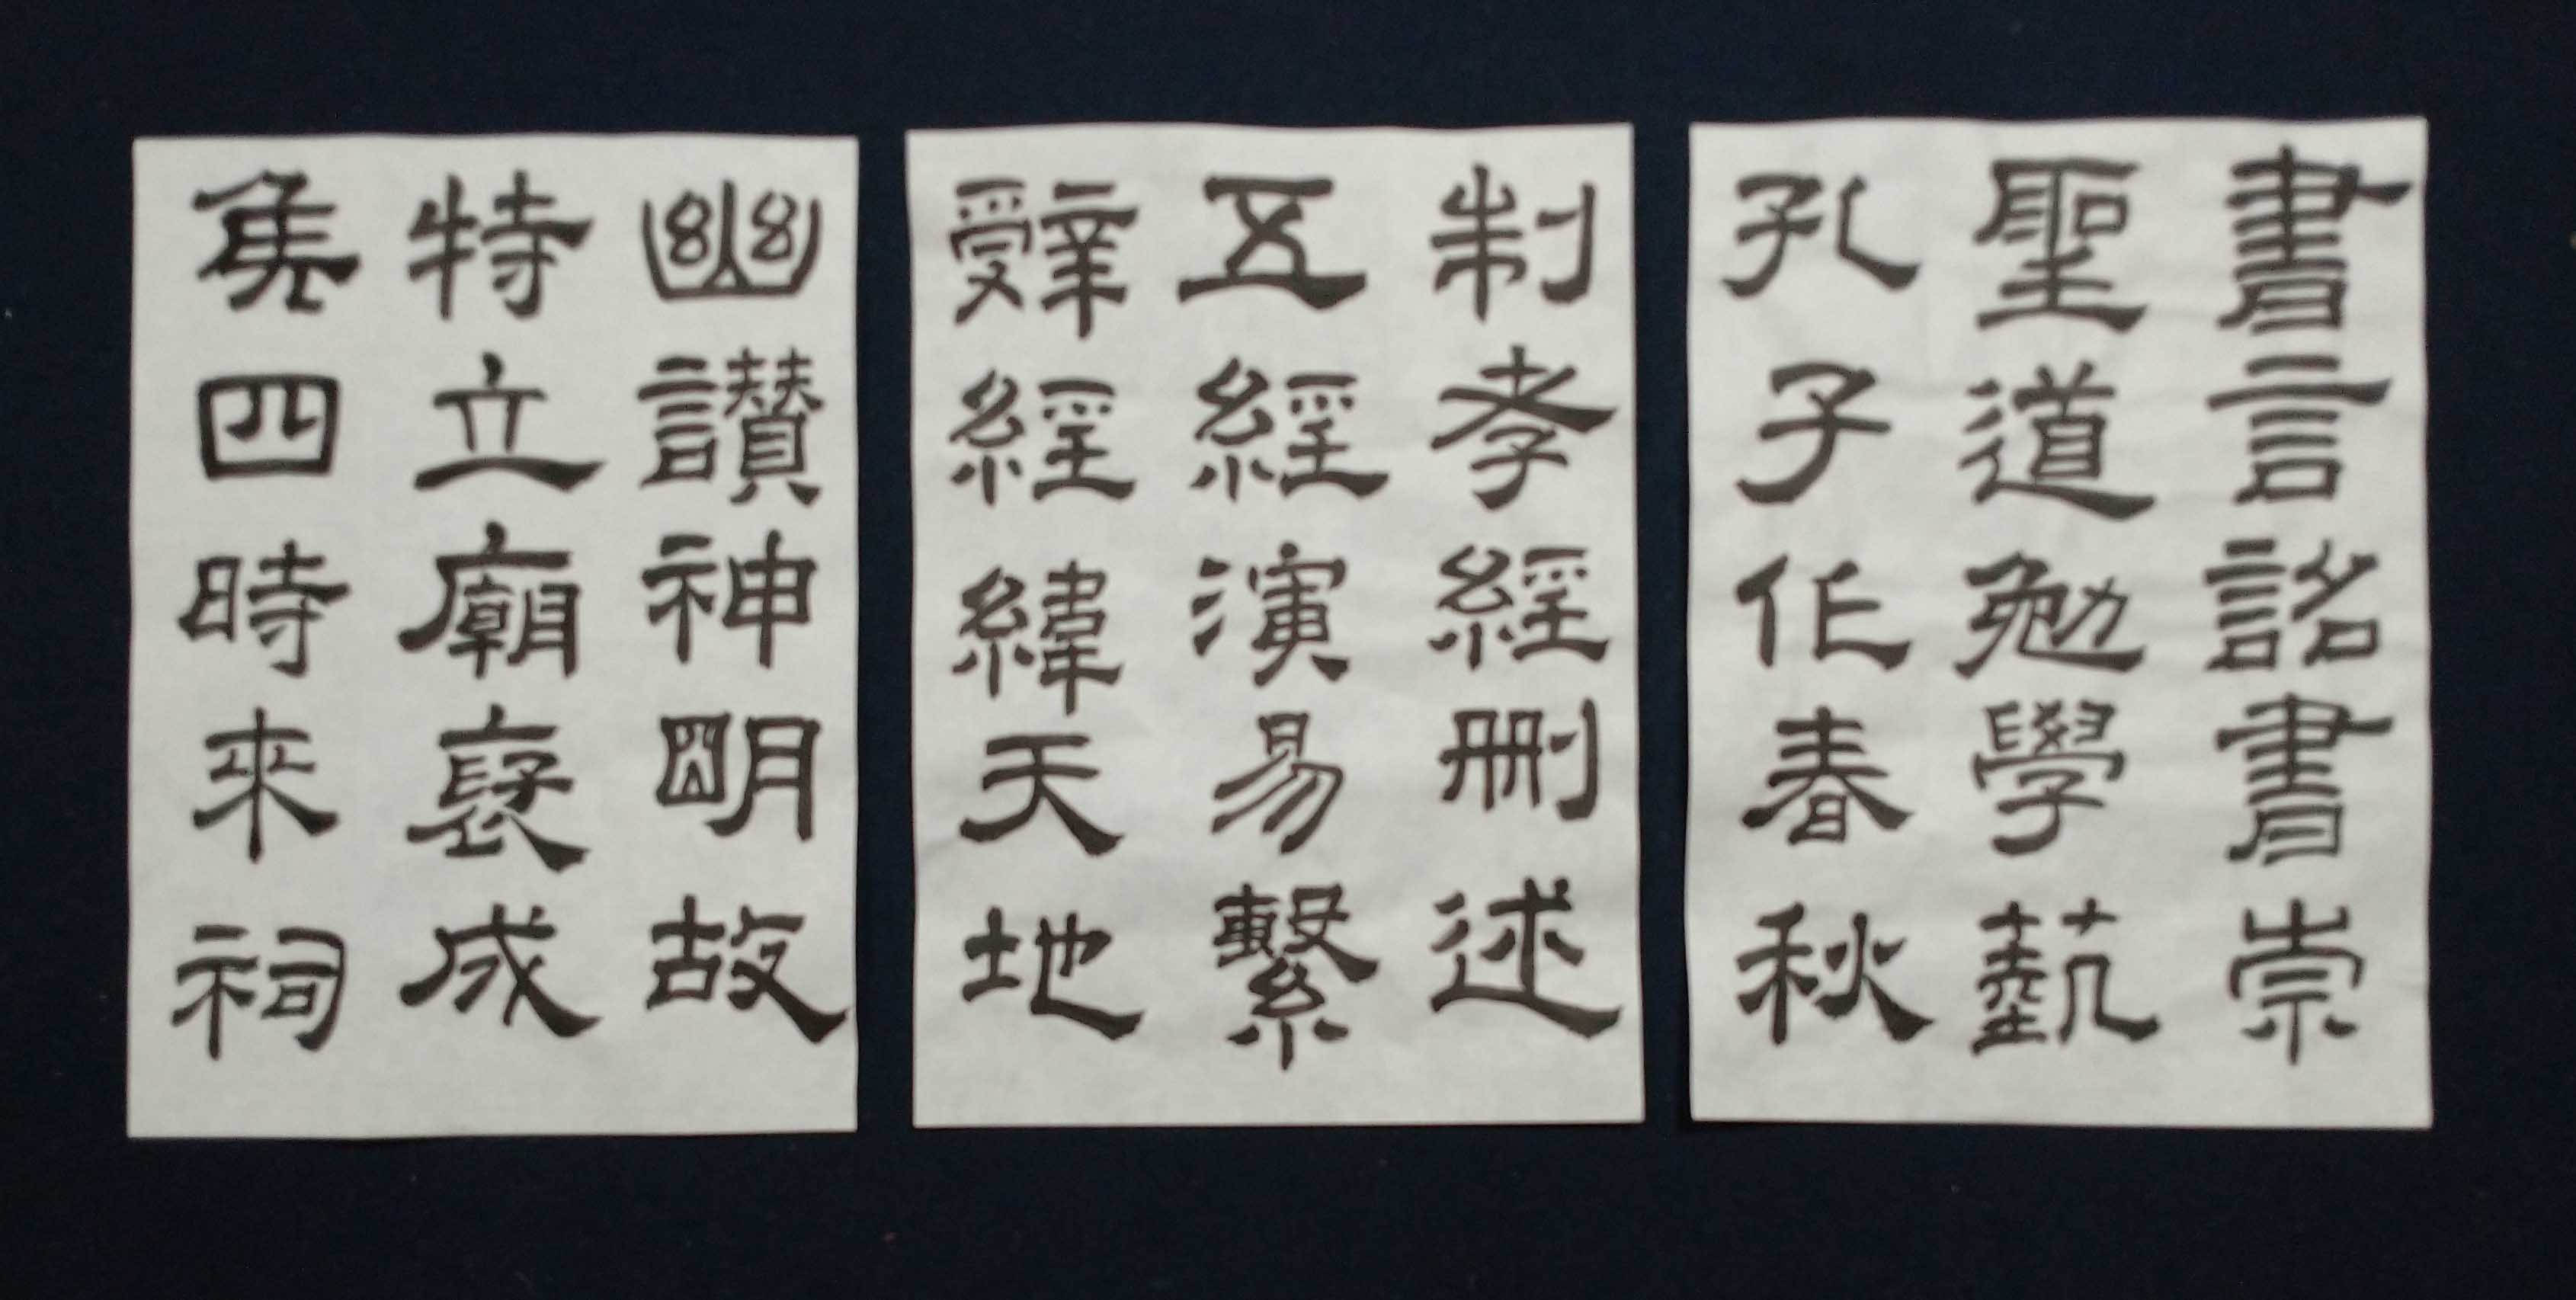 書言詔書崇
聖道勉學蓺
孔子作春秋
制孝經刪述
五經演易繫
辭經緯天地
幽讚神明故
特立廟褒成
侯四時來祠